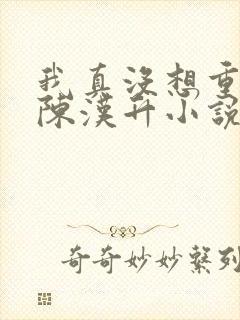 我真沒想重
陳漢升小說
奇奇妙妙繫列